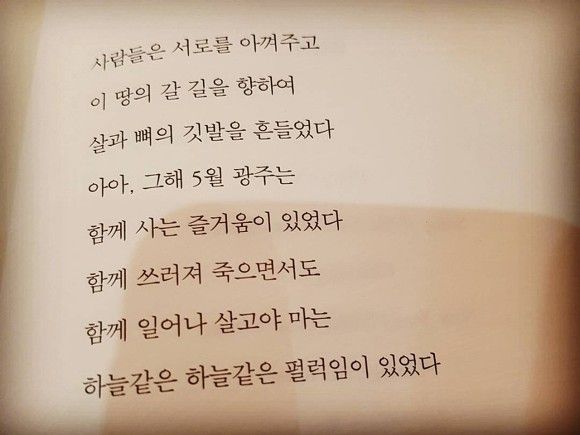 사람들은 서로를 아껴주고
이 땅의 갈 길을 향하여
살과 뼈의 깃발을 흔들었다
아아, 그해 5월 광주는
함께 사는 즐거움이 있었다
함께 쓰러져 죽으면서도
함께 일어나 살고야 마는
하늘같은 하늘같은 펄럭임이 있었다